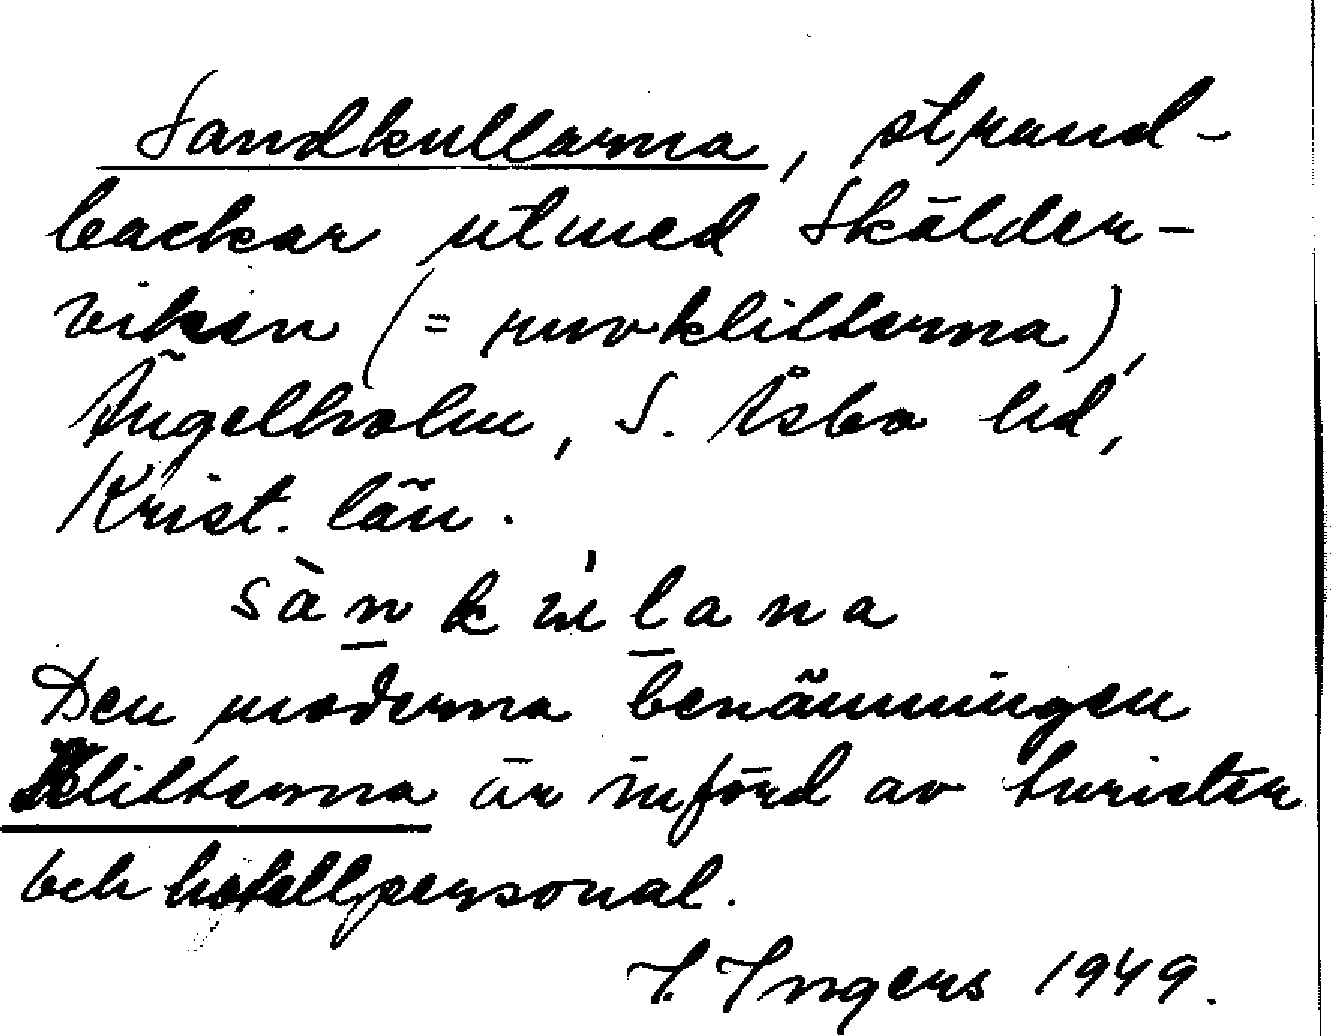 Sandkullarna, strand-
backar utmed Skälder-
viken (= murklitterna),
Ängelholm, S. Åsbo hd,
Krist. län.
sànkưlana
Den moderna benämningen
Klitterna är införd av turister
och hotellpersonal.
I. Ingers 1949.